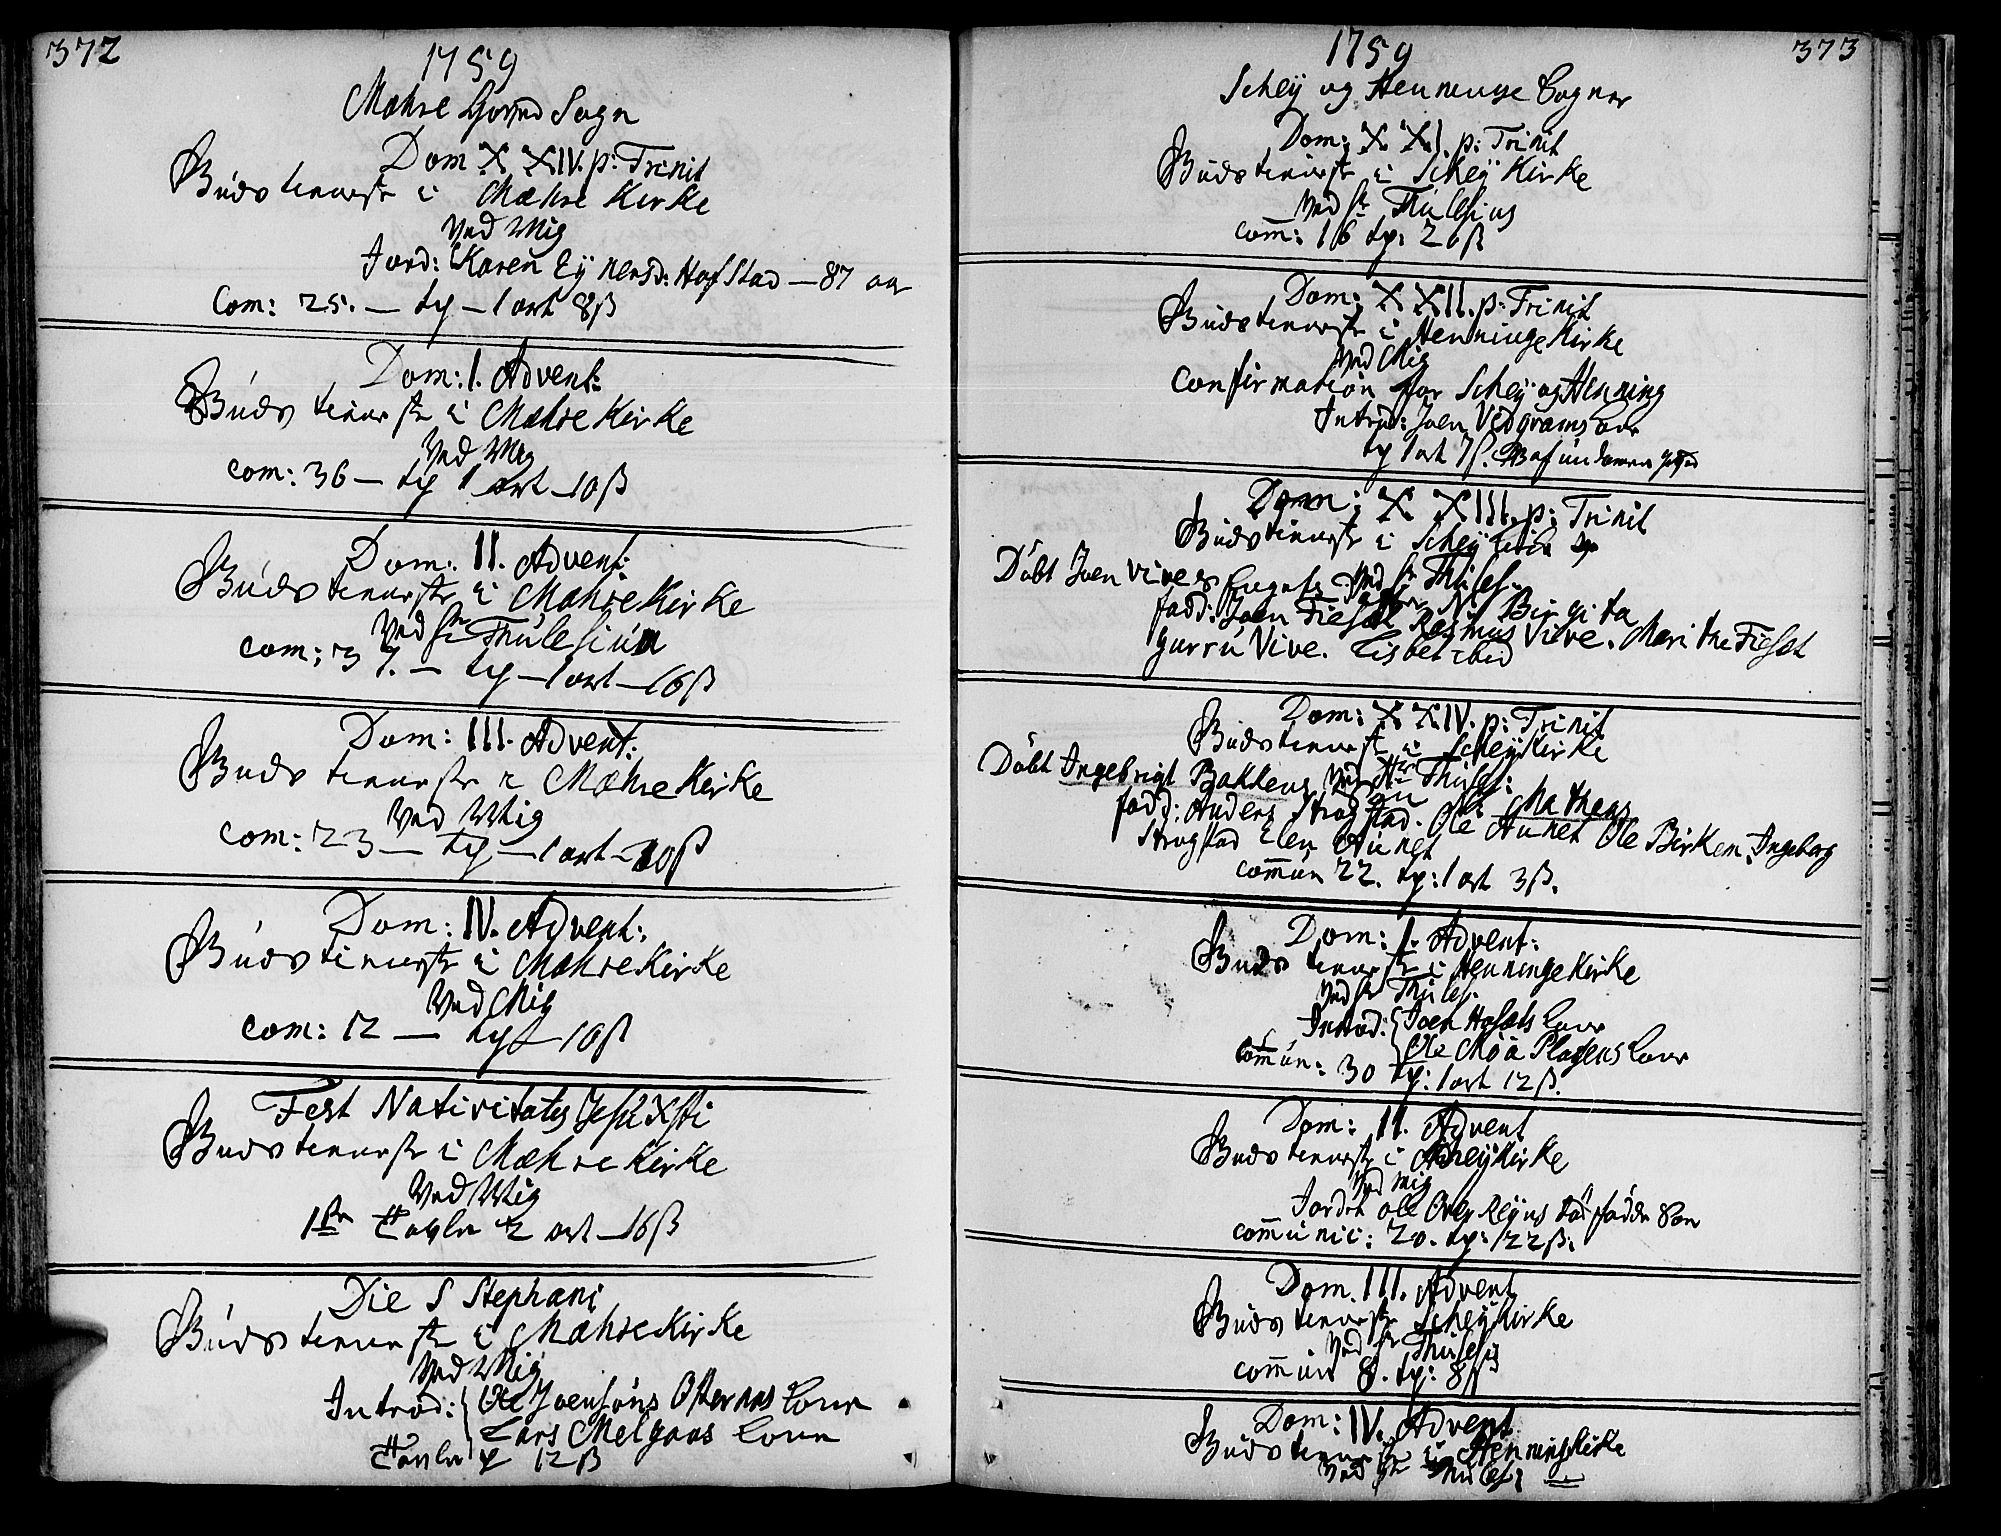 372
1759
Mæhre Hoved Sogn
Dom XXIV. p: Trinit
Gudstieniste i Mæhre Kirke
Ved Mig
Jord: Karen Eynersd: Hofstad — 87 aar
Com: 25. — ty — 1 ort 8ß
Dom: I. Advent:
Gudstieniste i Mæhre Kirke
Ved Mig
com: 36 — ty 1 ort — 10ß
Dom. II. Advent:
Gudstieniste i Mæhre Kirke
Ved Hr Thulesius
com: 37. — ty — 1 ort — 16ß
Dom: III. Advent:
Gudstieniste i Mæhre Kirke
Ved Mig
com: 23 — ty — 1 ort — 10ß
Dom: IV. Advent:
Gudstieniste i Mæhre Kirke
Ved Mig
com: 12 — ty — 10ß
Fest Nativitatis Jesu Xsti
Gudstieniste i Mæhre Kirke
Ved Mig
1ste Tavle 2 ort — 16ß
Die S Stephani
Gudstieniste i Mæhre Kirke
Ved Mig
Introd: Ole Joensøns Østeraas Kone
Lars Melgaas Kone
Tavle 12ß
373
1759
Schey og Henninge Sogner
Dom: XXI. p: Trinit
Gudstieniste i Schey Kirke
Ved Hr Thulesius
com: 16 ty: 26ß
Dom: XXII. p: Trinit
Gudstieniste i Henninge Kirke
Ved Mig
Confirmation for Schey og Henning
Introd: Joen Vedgrams Kone
ty 1 ort 7ß.
Dom: XXIII. p: Trinit
Gudstieniste i Schey Kirke
Ved Hr Thules:
Døbt Joen Vives N: Birgita
fadd: Joen Fieset Rasmus Vive. Marithe Fieset
Gurru Vive. Lisbet ibid
Dom: XXIV. p: Trinit
Gudstieniste i Schey Kirke
Ved Hr Thules:
Døbt Ingebrigt Bakkens N: Mathæas
fadd: Anders Strugstad. Ole Aunet Ole Birkem. Ingeborg
Strugstad Elen Aunet
commun 22. ty: 1 ort 3ß.
Dom: I. Advent:
Gudstieniste i Henninge Kirke
Ved Hr Thules.
Introd: Joen Hafsets Kone
Ole Møa Pladsens Kone
commun: 30 ty: 1 ort 12ß.
Dom: II. Advent
Gudstieniste i Schey Kirke
Ved mig
Jordet Ole Overreyns død fødde Søn
communic: 20. ty: 22ß.
Dom. III. Advent
Gudstieniste i Schey Kirke
Ved Hr Thules:
commun 8. ty: 8ß
Dom: IV. Advent
Gudstieniste i Henning Kirke
Ved Hr Thules: